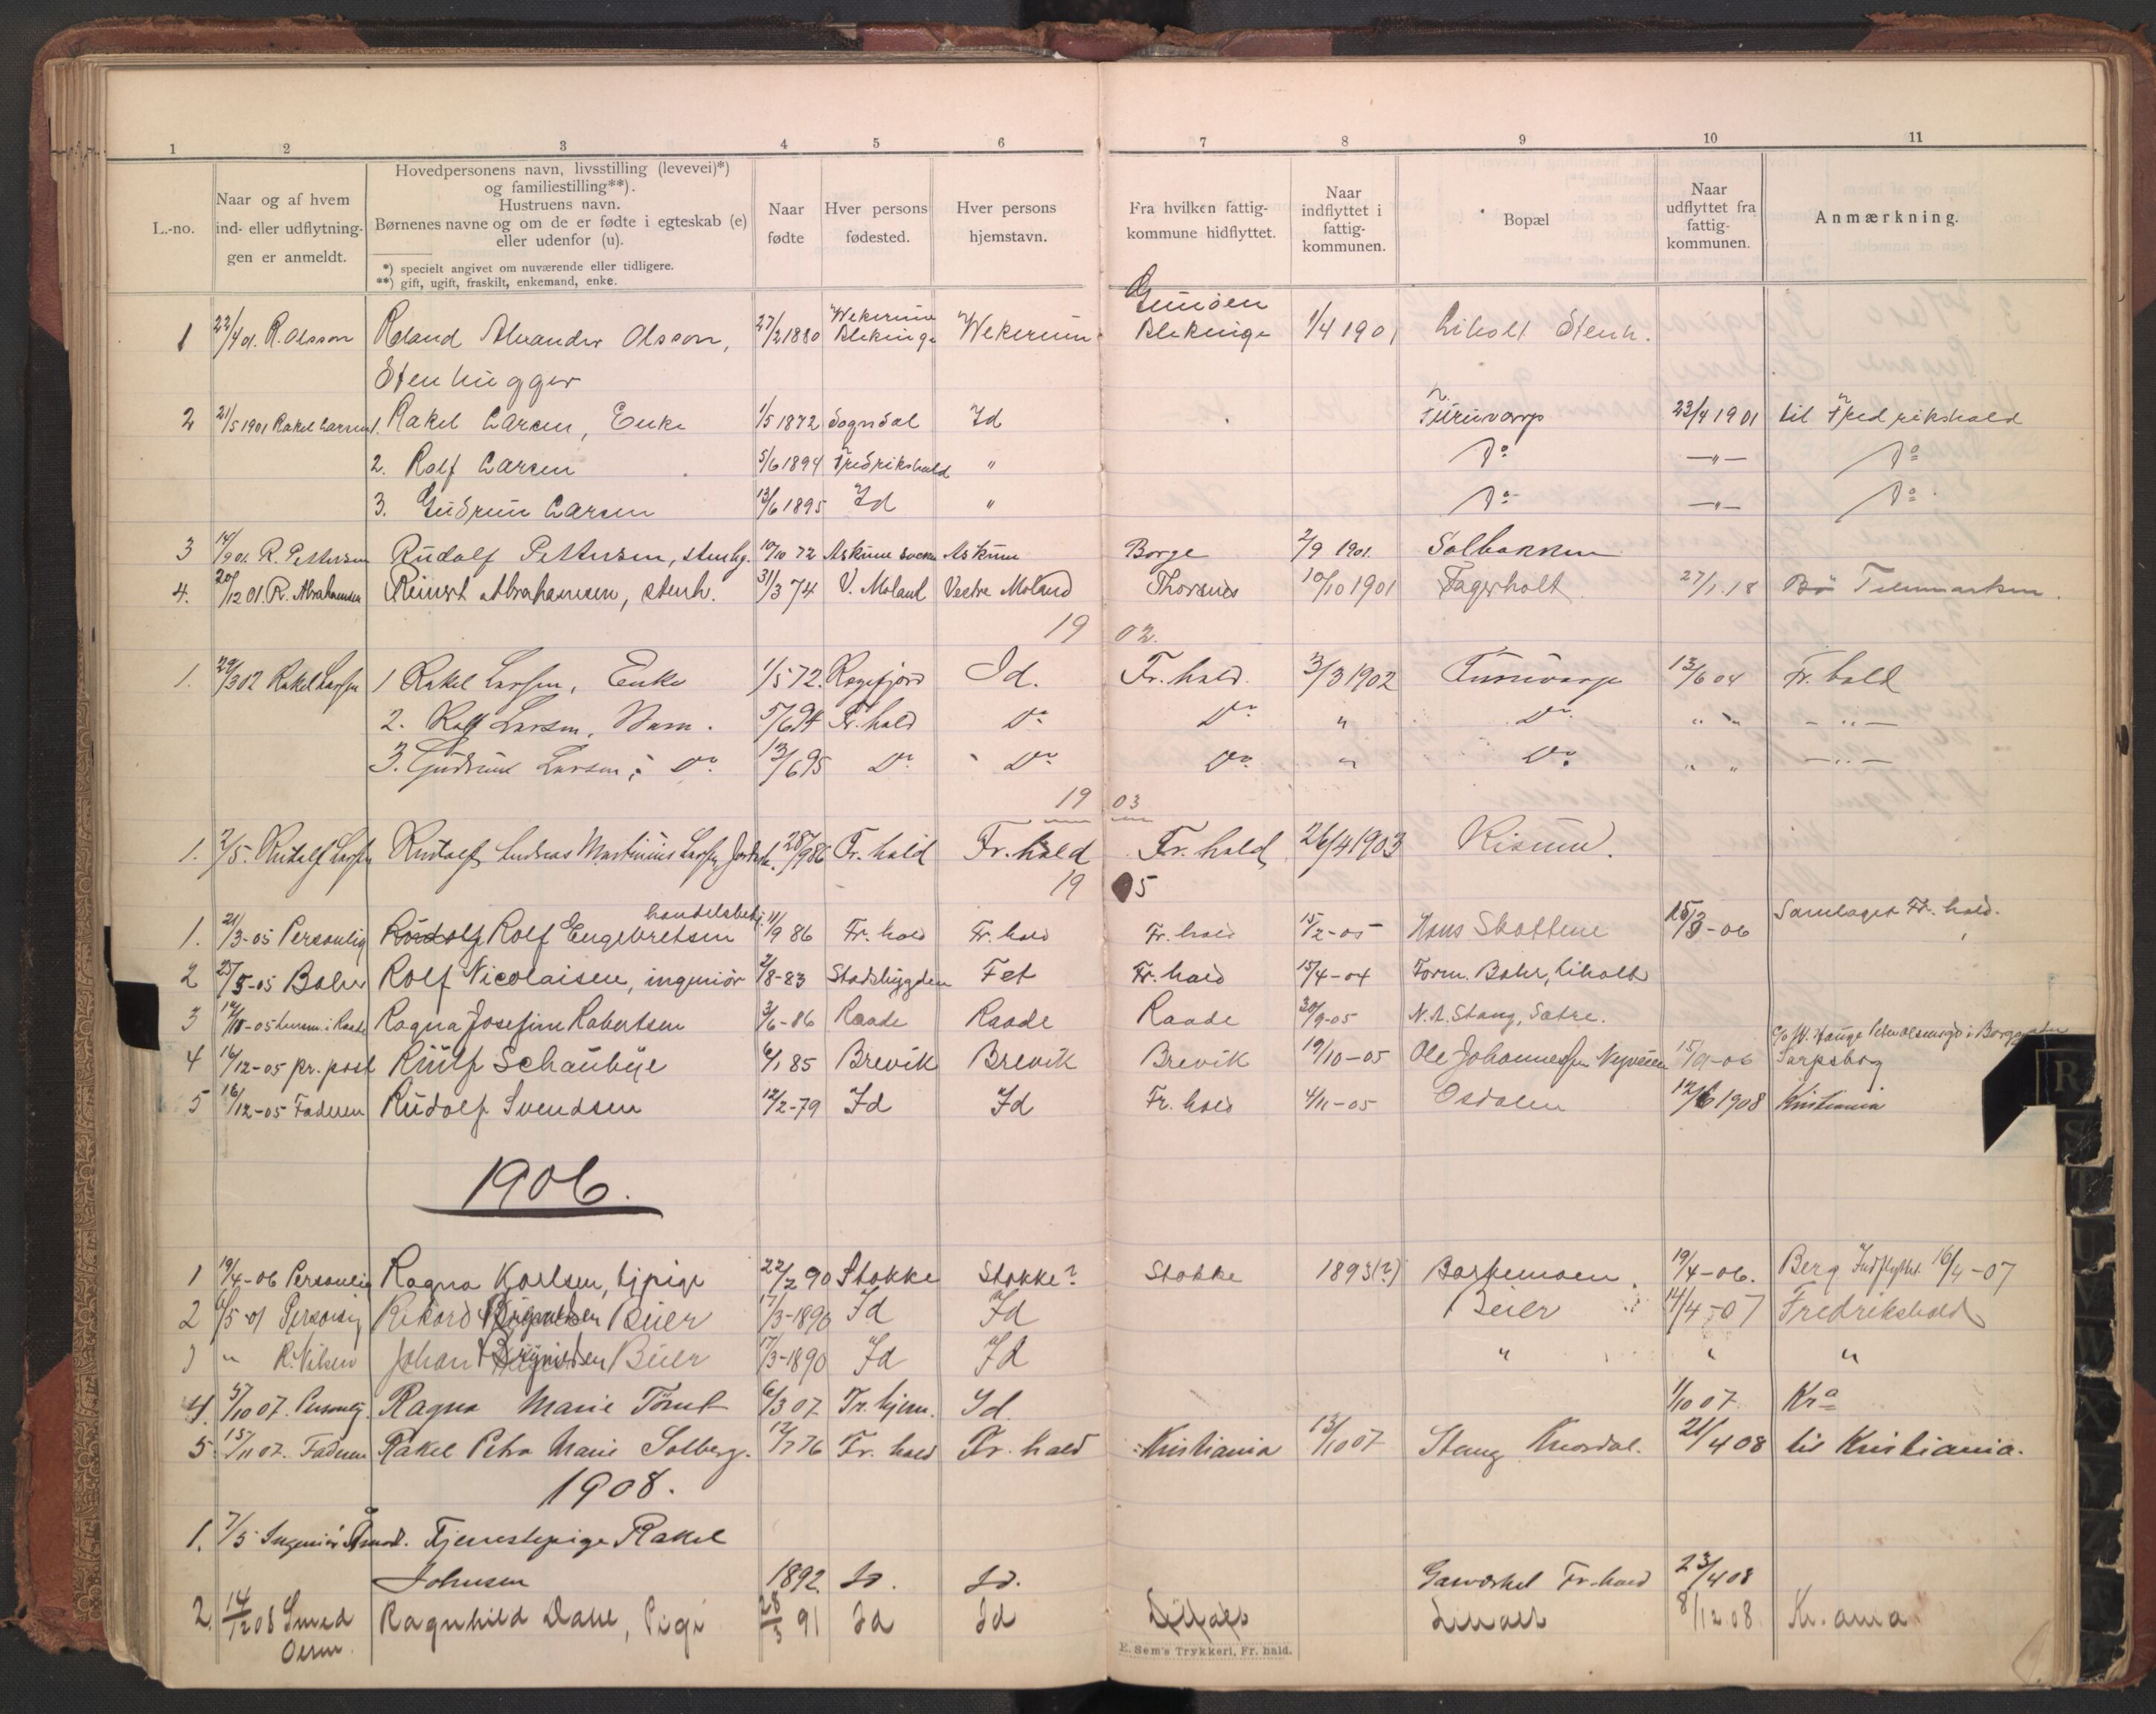 1 2 3 4 5 6 7 8 9 10 11
L.-no.
Naar og af hvem
ind- eller udflytnin-
gen er anmeldt.
Hovedpersonens navn, livsstilling (levevei)*)
og familiestilling**).
Hustruens navn.
Børnenes navne og om de er fødte i egteskab (e)
eller udenfor (u).
*) specielt angivet om nuværende eller tidligere.
**) gift, ugift, fraskilt, enkemand, enke.
Naar
fødte
Hver persons
fødested.
Hver persons
hjemstavn.
Fra hvilken fattig-
kommune hidflyttet.
Naar
indflyttet i
fattig-
kommunen.
Bopæl
Naar
udflyttet fra
fattig-
kommunen.
Anmærkning.
Wekerum
1 22/4 01. R. Olsson Roland Alexander Olsson, 27/2 1880 Blekinge Wekerum Blekinge 1/4 1901 Liholt Stenh.
Stenhugger
2 21/5 1901 Rakel Larsen 1. Rakel Larsen, Enke 1/5 1872 Sogndal Id Furuvarp 23/4 1901 til Fredrikshald
2. Rolf Larsen 5/6 1894 Fredrikshald " Do —"— Do
3. Gudrun Larsen 13/6 1895 Id " Do —"— Do
3 14/9 01. R. Pettersen Rudolf Pettersen, stenhg. 10/10 72 Askum Askum Borge 2/9 1901. Solbakken
4. 20/12 01. R. Abrahamsen Reinert Abrahamsen, stenh. 31/3 74 V. Moland Vestre Moland Thorsnes 10/10 1901 Fagerholt 27/1 18 Bø Telemarken.
19 02.
1. 29/3 02 Rakel Larsen 1 Rakel Larsen, Enke 1/5 72. Id. Fr.hald. 3/3 1902 Furuvarp 13/6 04 Fr. hald
2. Rolf Larsen, Barn. 5/6 94 Fr. hald Do Do " Do " " — " —
3. Gudrun Larsen, Do 13/6 95 Do Do Do " Do " " — " —
19 03
1. 2/5. Rudolf Larsen Rudolf Andreas Martinius Larsen 28/9 86 Fr. hald Fr. hald Fr. hald 26/4 1903 Risum.
19 05
handelsbetj.
1. 21/3-05 Personlig Rudolf Rolf Engebretsen 11/9 86 Fr. hald Fr. hald Fr. hald 15/2-05 Hans Skottene 15/3-06 Samlaget Fr. hald.
2 25/5-05 Bohr Rolf Nicolaisen, ingeniør 2/8-83 Stadsbygden Fet Fr. hald 15/4-04 Form. Bohr, Liholt
3 12/10-05 Lensm. i Raade Ragna Josefine Robertsen 3/6-86 Raade Raade Raade 30/9-05 N. A. Stang, Sætre.
4 16/12-05 pr. post Rülf Schaubye 6/1 85 Brevik Brevik Brevik 19/10-05 Ole Johannessen Nyveien 15/9-06 Sarpsborg
5 16/12-05 Faderen Rudolf Svendsen 12/2-79 Id Id Fr. hald 4/11-05 Osdalen 12/6 1908 Kristiania
1906.
1 19/4-06 Personlig Ragna Karlsen, tjpige 22/2 90 Stokke Stokke? Stokke 1893(?) Borkemoen. 19/4-06. Berg Indflyttet 16/4-07
2 Personlig Rikard Beier 17/3-1890 Id Id Beier 14/4-07 Fredrikshald
3 " R. Nilsen Johan Beier 17/3-1890 Id Id " " "
4. 5/10 07. Personlig Ragna Marie 6/3 07 Fr. hjem. Id. 1/10 07 Kra
5. 15/11 07. Faderen Rakel Petra Marie Solberg. 12/7 76 Fr. hald Fr. hald Kristiania 13/10 07 Stang Knardal. 21/4 08 til Kristiania.
1908.
1. 7/5 Ingeniør Tjenestepige Rakel
Johnsen 1892. Id. Id. Gasværket Fr.hald 23/4 08
2. 14/12 08 Smed Ragnhild Dahl, Pige 28/3 91 Id Id 8/12 08. Kr.ania
E. Sem's Trykkeri, Fr. hald.
R